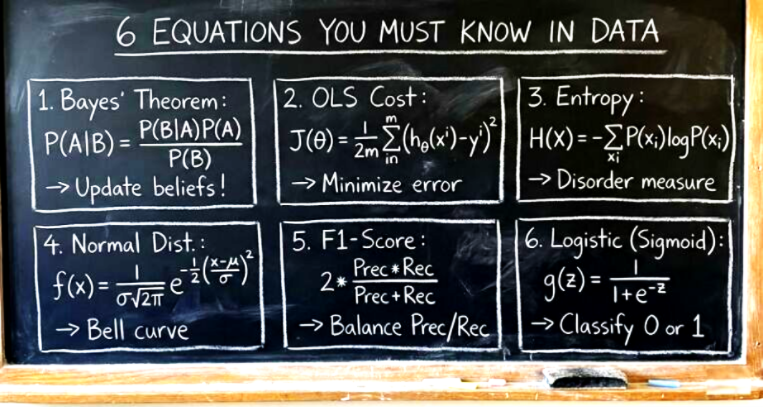 6 EQUATIONS YOU MUST KNOW IN DATA
1. Bayes' Theorem:
P(A|B) = P(B|A)P(A) / P(B)
→ Update beliefs!
2. OLS Cost:
J(θ) = 1/2m m∑in (hθ(xⁱ)-yⁱ)²
→ Minimize error
3. Entropy:
H(X) = -∑xi P(xi)logP(xi)
→ Disorder measure
4. Normal Dist.:
f(x) = 1/σ√2π e^-1/2(x-μ/σ)²
→ Bell curve
5. F1-Score:
2* Prec*Rec / Prec+Rec
→ Balance Prec/Rec
6. Logistic (Sigmoid):
g(z) = 1 / 1+e^-z
→ Classify 0 or 1